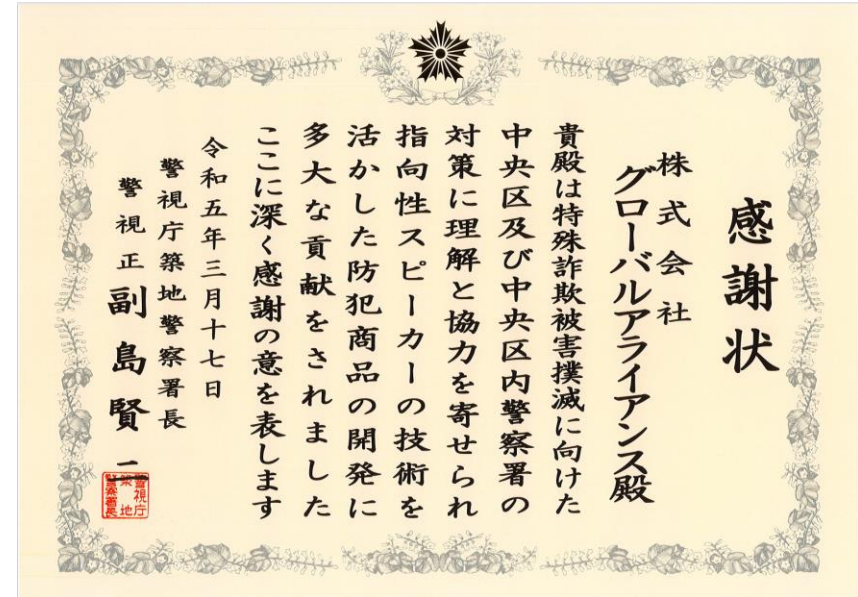 感謝状
株式会社
グローバルアライアンス殿
貴殿は特殊詐欺被害撲滅に向けた
中央区及び中央区内警察署の
対策に理解と協力を寄せられ
指向性スピーカーの技術を
活かした防犯商品の開発に
多大な貢献をされました
ここに深く感謝の意を表します
令和五年三月十七日
警視庁築地警察署長
警視正副島賢一
警視庁
築地
警察署長